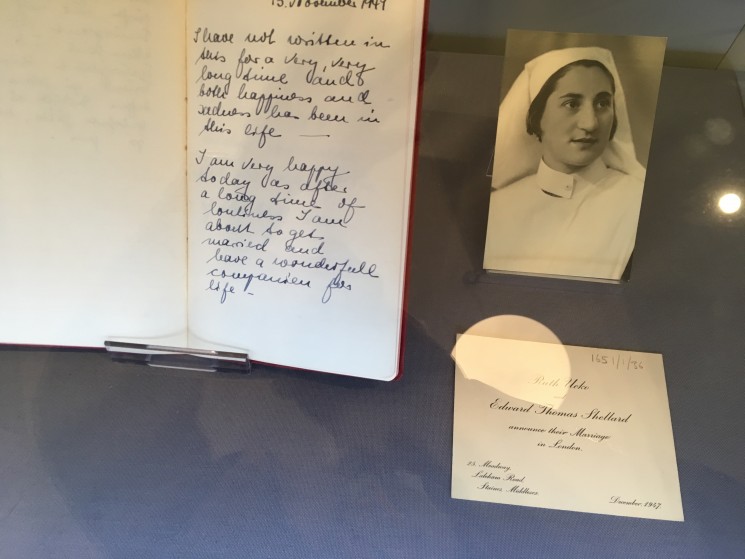 15. November 1947
I have not written in
this for a very, very
long time and
both happiness and
sadness has been in
this life —
I am very happy
today as after
a long time of
lonliness I am
about to get
married and
have a wonderfull
companion for
life –
1651/1/36
Ruth Ucko
and
Edward Thomas Shellard
announce their Marriage
in London.
Laleham Road,
Staines, Middlesex.
December, 1947.